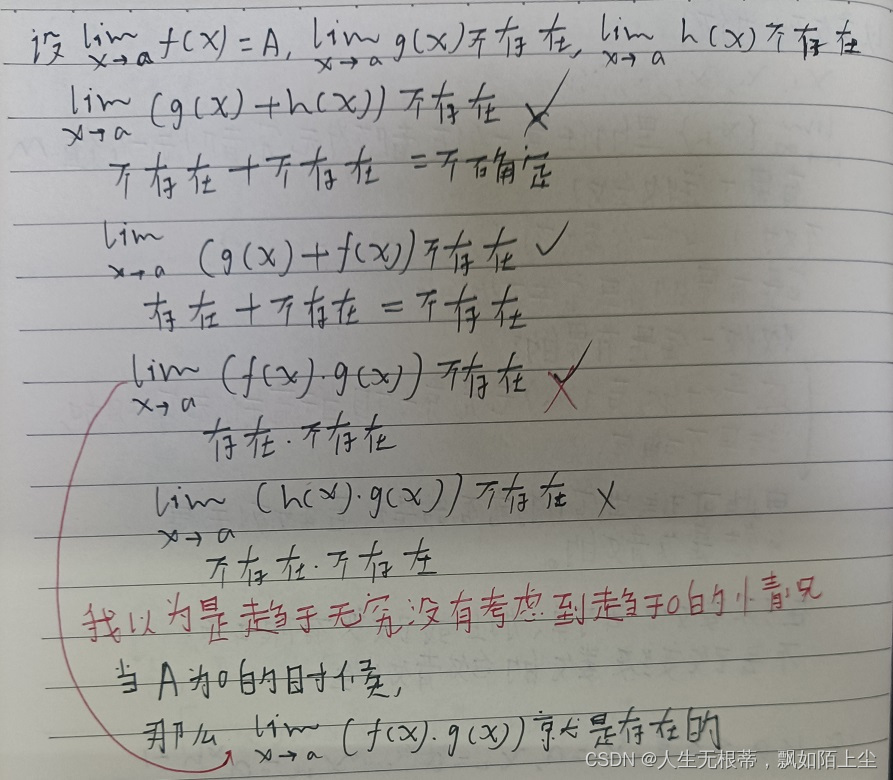 设 lim x→a f(x)=A, lim x→a g(x)不存在, lim x→a h(x)不存在
lim x→a (g(x)+h(x))不存在 ✗
不存在+不存在=不确定
lim x→a (g(x)+f(x))不存在 ✓
存在+不存在=不存在
lim x→a (f(x)·g(x))不存在 ✗
存在·不存在
lim x→a (h(x)·g(x))不存在 ✗
不存在·不存在
我以为是趋于无穷没有考虑到趋于0的情况
当A为0的时候,
那么 lim x→a (f(x)·g(x))就是存在的
CSDN @人生无根蒂,飘如陌上尘